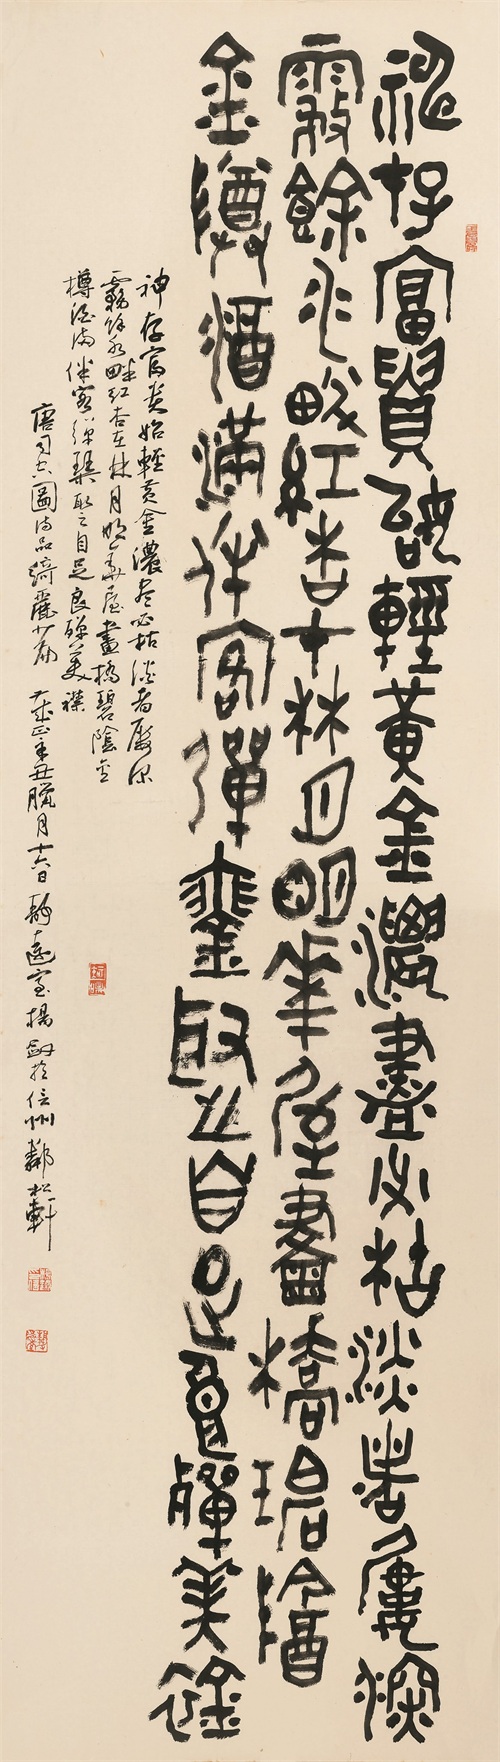 神存富貴始輕黃金濃盡必枯淡者屢深
霧餘水畔紅杏在林月明華屋畫橋碧陰
金罇酒滿伴客彈琴取之自足良殫美襟
神存富貴始輕黃金濃盡必枯淡者屢深
霧餘水畔紅杏在林月明華屋畫橋碧陰金
樽酒滿伴客彈琴取之自足良殫美襟
唐司空圖詩品綺麗篇 太歲辛丑臘月十六日靜遠室楊劍於信州鄰松軒